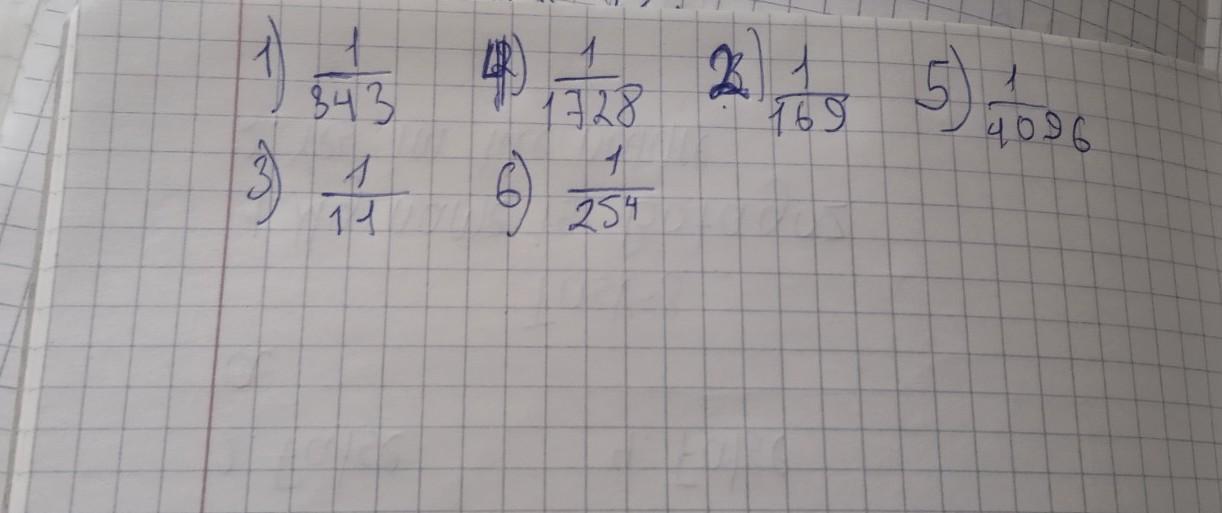 1) 1/343 4) 1/1728 2) 1/169 5) 1/4096
3) 1/11 6) 1/25⁴